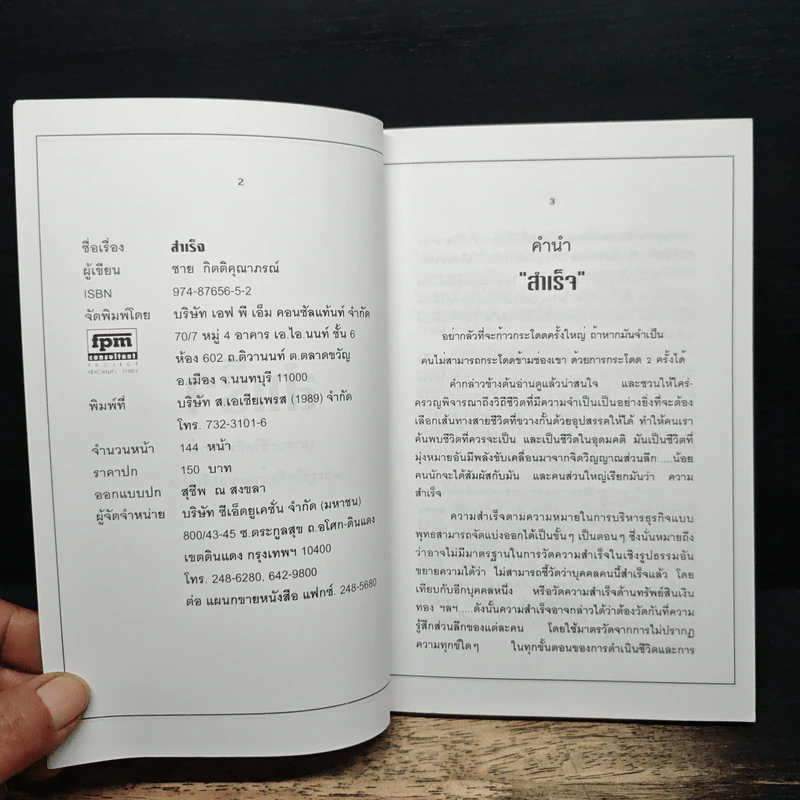 2
ชื่อเรื่อง สำเร็จ
ผู้เขียน ชาย กิตติคุณาภรณ์
ISBN 974-87656-5-2
จัดพิมพ์โดย บริษัท เอฟ พี เอ็ม คอนซัลแท้นท์ จำกัด
fpm consultant 70/7 หมู่ 4 อาคาร เอ.ไอ.นนท์ ชั้น 6
PROJECT ห้อง 602 ถ.ติวานนท์ ต.ตลาดขวัญ
FEASIBILITY STUDY อ.เมือง จ.นนทบุรี 11000
พิมพ์ที่ บริษัท ส.เอเซียเพรส (1989) จำกัด
โทร. 732-3101-6
จำนวนหน้า 144 หน้า
ราคาปก 150 บาท
ออกแบบปก สุชีพ ณ สงขลา
ผู้จัดจำหน่าย บริษัท ซีเอ็ดยูเคชั่น จำกัด (มหาชน)
800/43-45 ซ.ตระกูลสุข ถ.อโศก-ดินแดง
เขตดินแดง กรุงเทพฯ 10400
โทร. 248-6280, 642-9800
ต่อ แผนกขายหนังสือ แฟกซ์. 248-5680
3
คำนำ
"สำเร็จ"
อย่ากลัวที่จะก้าวกระโดดครั้งใหญ่ ถ้าหากมันจำเป็น
คนไม่สามารถกระโดดข้ามช่องเขา ด้วยการกระโดด 2 ครั้งได้
คำกล่าวข้างต้นอ่านดูแล้วน่าสนใจ และชวนให้ใคร่-
ครวญพิจารณาถึงวิถีชีวิตที่มีความจำเป็นเป็นอย่างยิ่งที่จะต้อง
เลือกเส้นทางสายชีวิตที่ขวางกั้นด้วยอุปสรรคให้ได้ ทำให้คนเรา
ค้นพบชีวิตที่ควรจะเป็น และเป็นชีวิตในอุดมคติ มันเป็นชีวิตที่
มุ่งหมายอันมีพลังขับเคลื่อนมาจากจิตวิญญาณส่วนลึก.....น้อย
คนนักจะได้สัมผัสกับมัน และคนส่วนใหญ่เรียกมันว่า ความ
สำเร็จ
ความสำเร็จตามความหมายในการบริหารธุรกิจแบบ
พุทธสามารถจัดแบ่งออกได้เป็นขั้นๆ เป็นตอนๆ ซึ่งนั่นหมายถึง
ว่าอาจไม่มีมาตรฐานในการวัดความสำเร็จในเชิงรูปธรรมอัน
ขยายความได้ว่า ไม่สามารถชี้วัดว่าบุคคลคนนี้สำเร็จแล้ว โดย
เทียบกับอีกบุคคลหนึ่ง หรือวัดความสำเร็จด้านทรัพย์สินเงิน
ทอง ฯลฯ.....ดังนั้นความสำเร็จอาจกล่าวได้ว่าต้องวัดกันที่ความ
รู้สึกส่วนลึกของแต่ละคน โดยใช้มาตรวัดจากการไม่ปรากฏ
ความทุกข์ใดๆ ในทุกขั้นตอนของการดำเนินชีวิตและการ